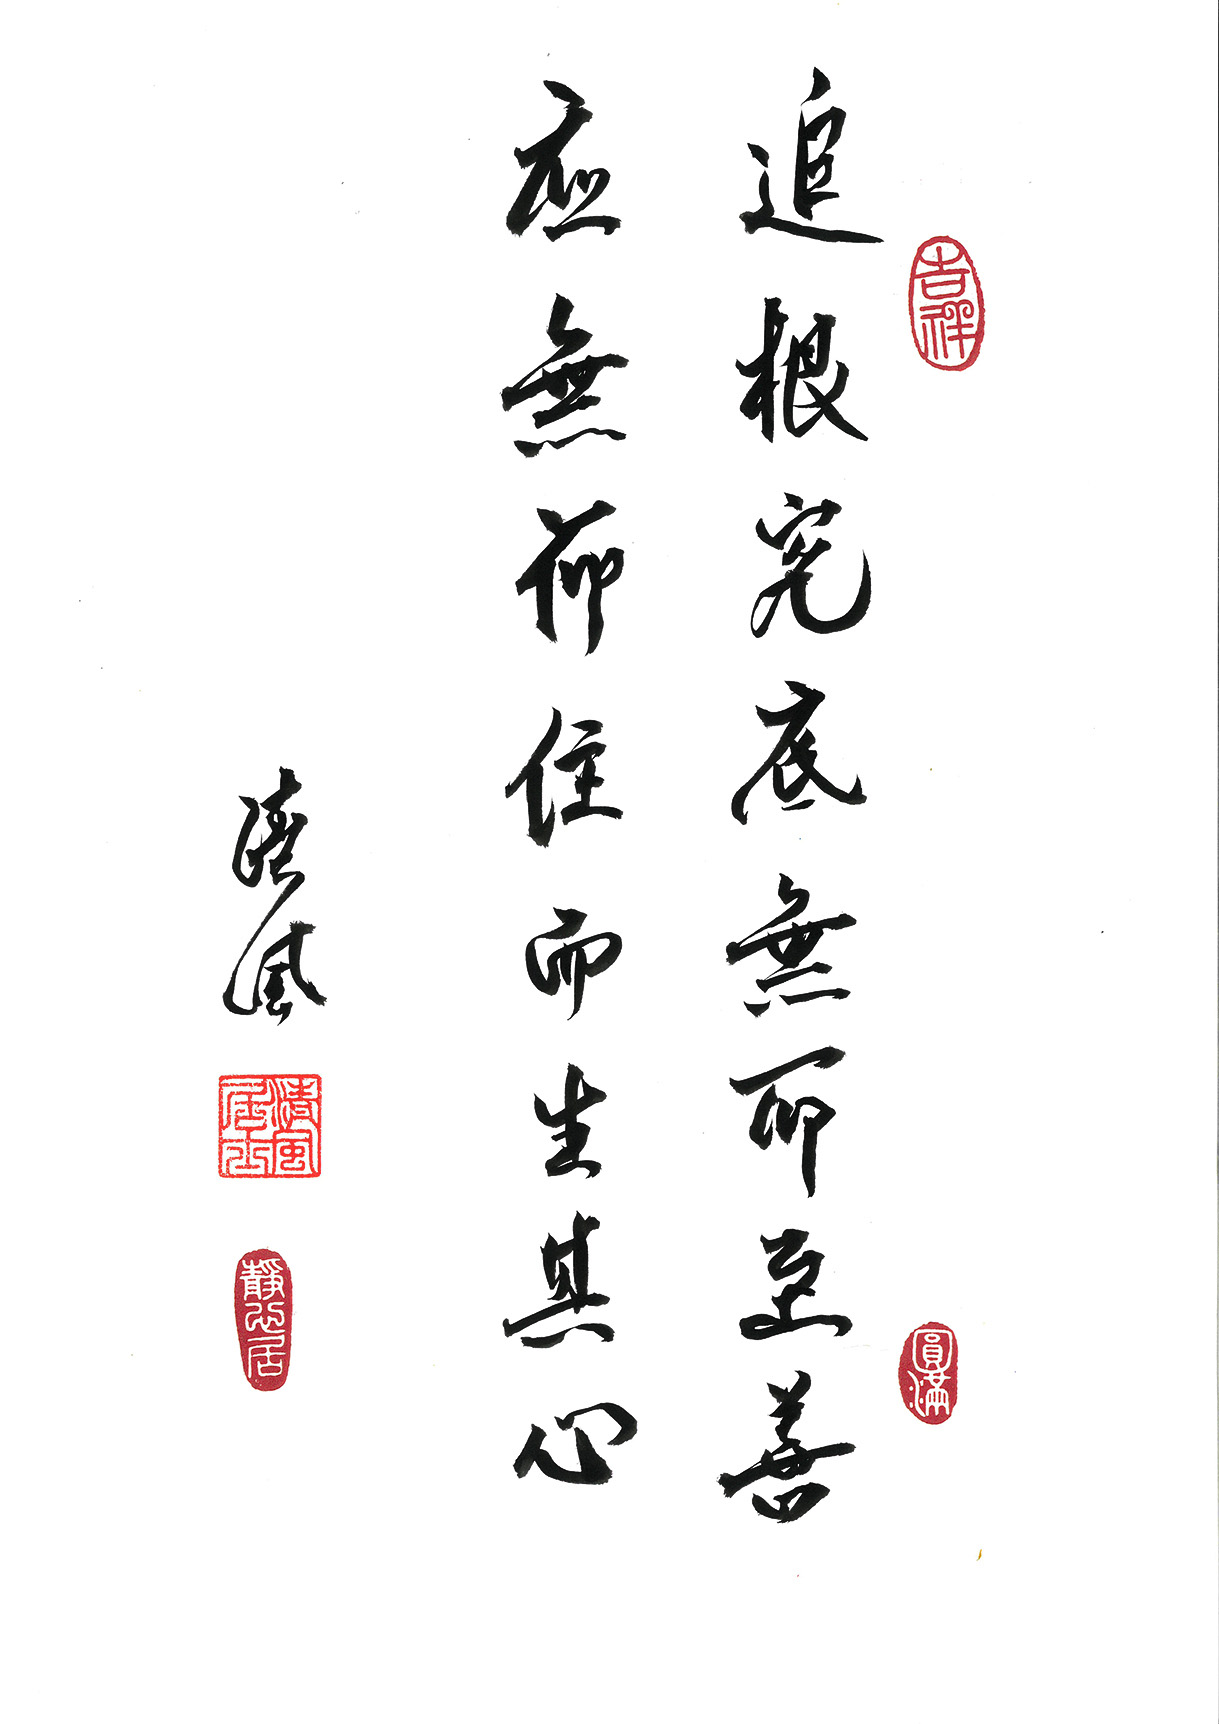 吉祥
追根究底無所至善
圓滿
應無所住而生其心
清風
清風居士
靜心居